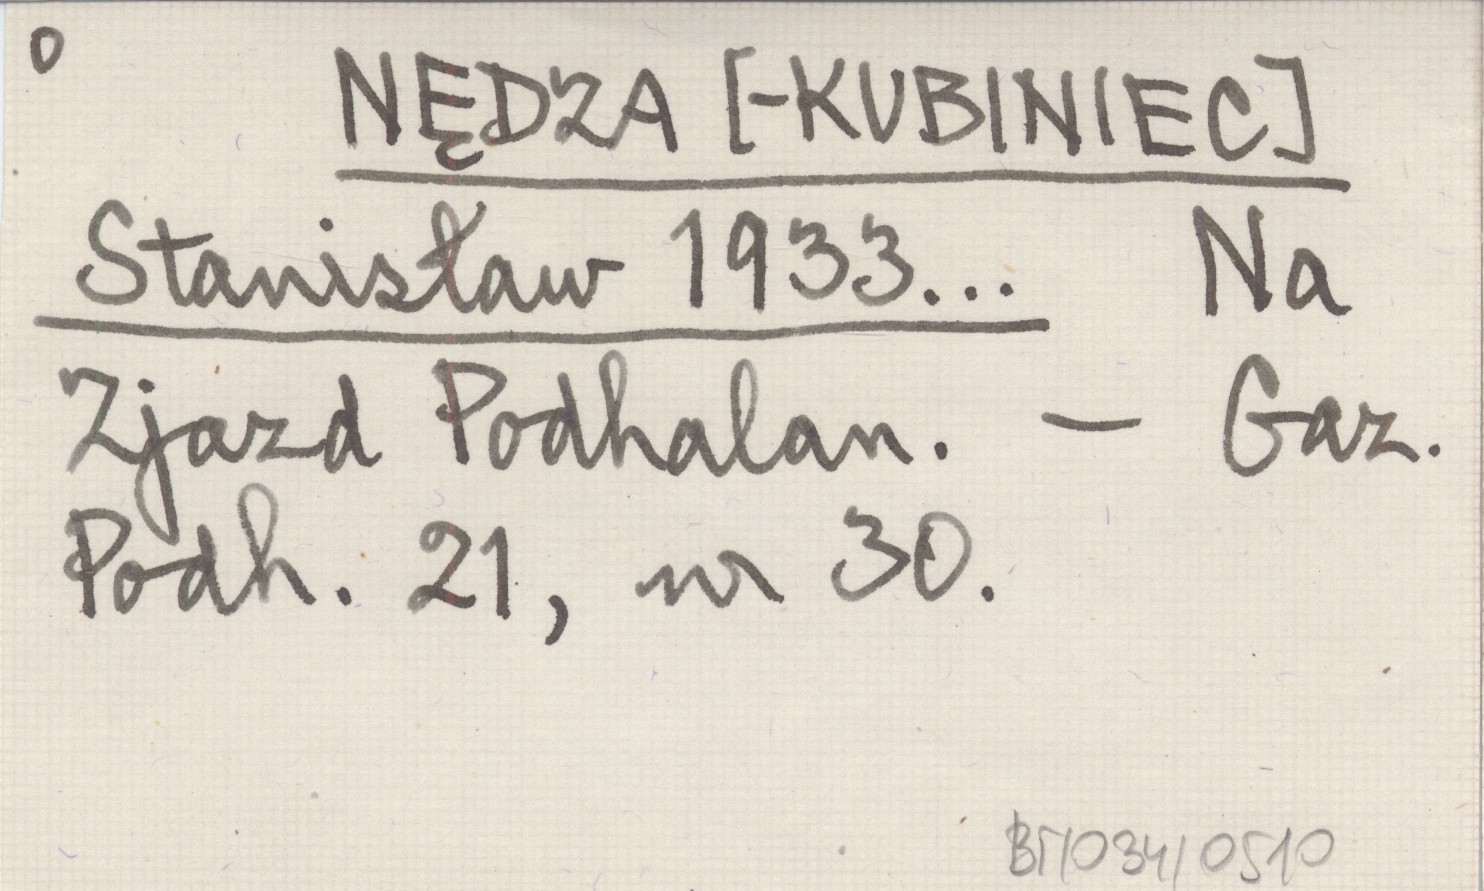 0
NĘDZA [-KUBINIEC]
Stanisław 1933... Na
Zjazd Podhalan. - Gaz.
Podh. 21, nr 30.
BT/034/0510